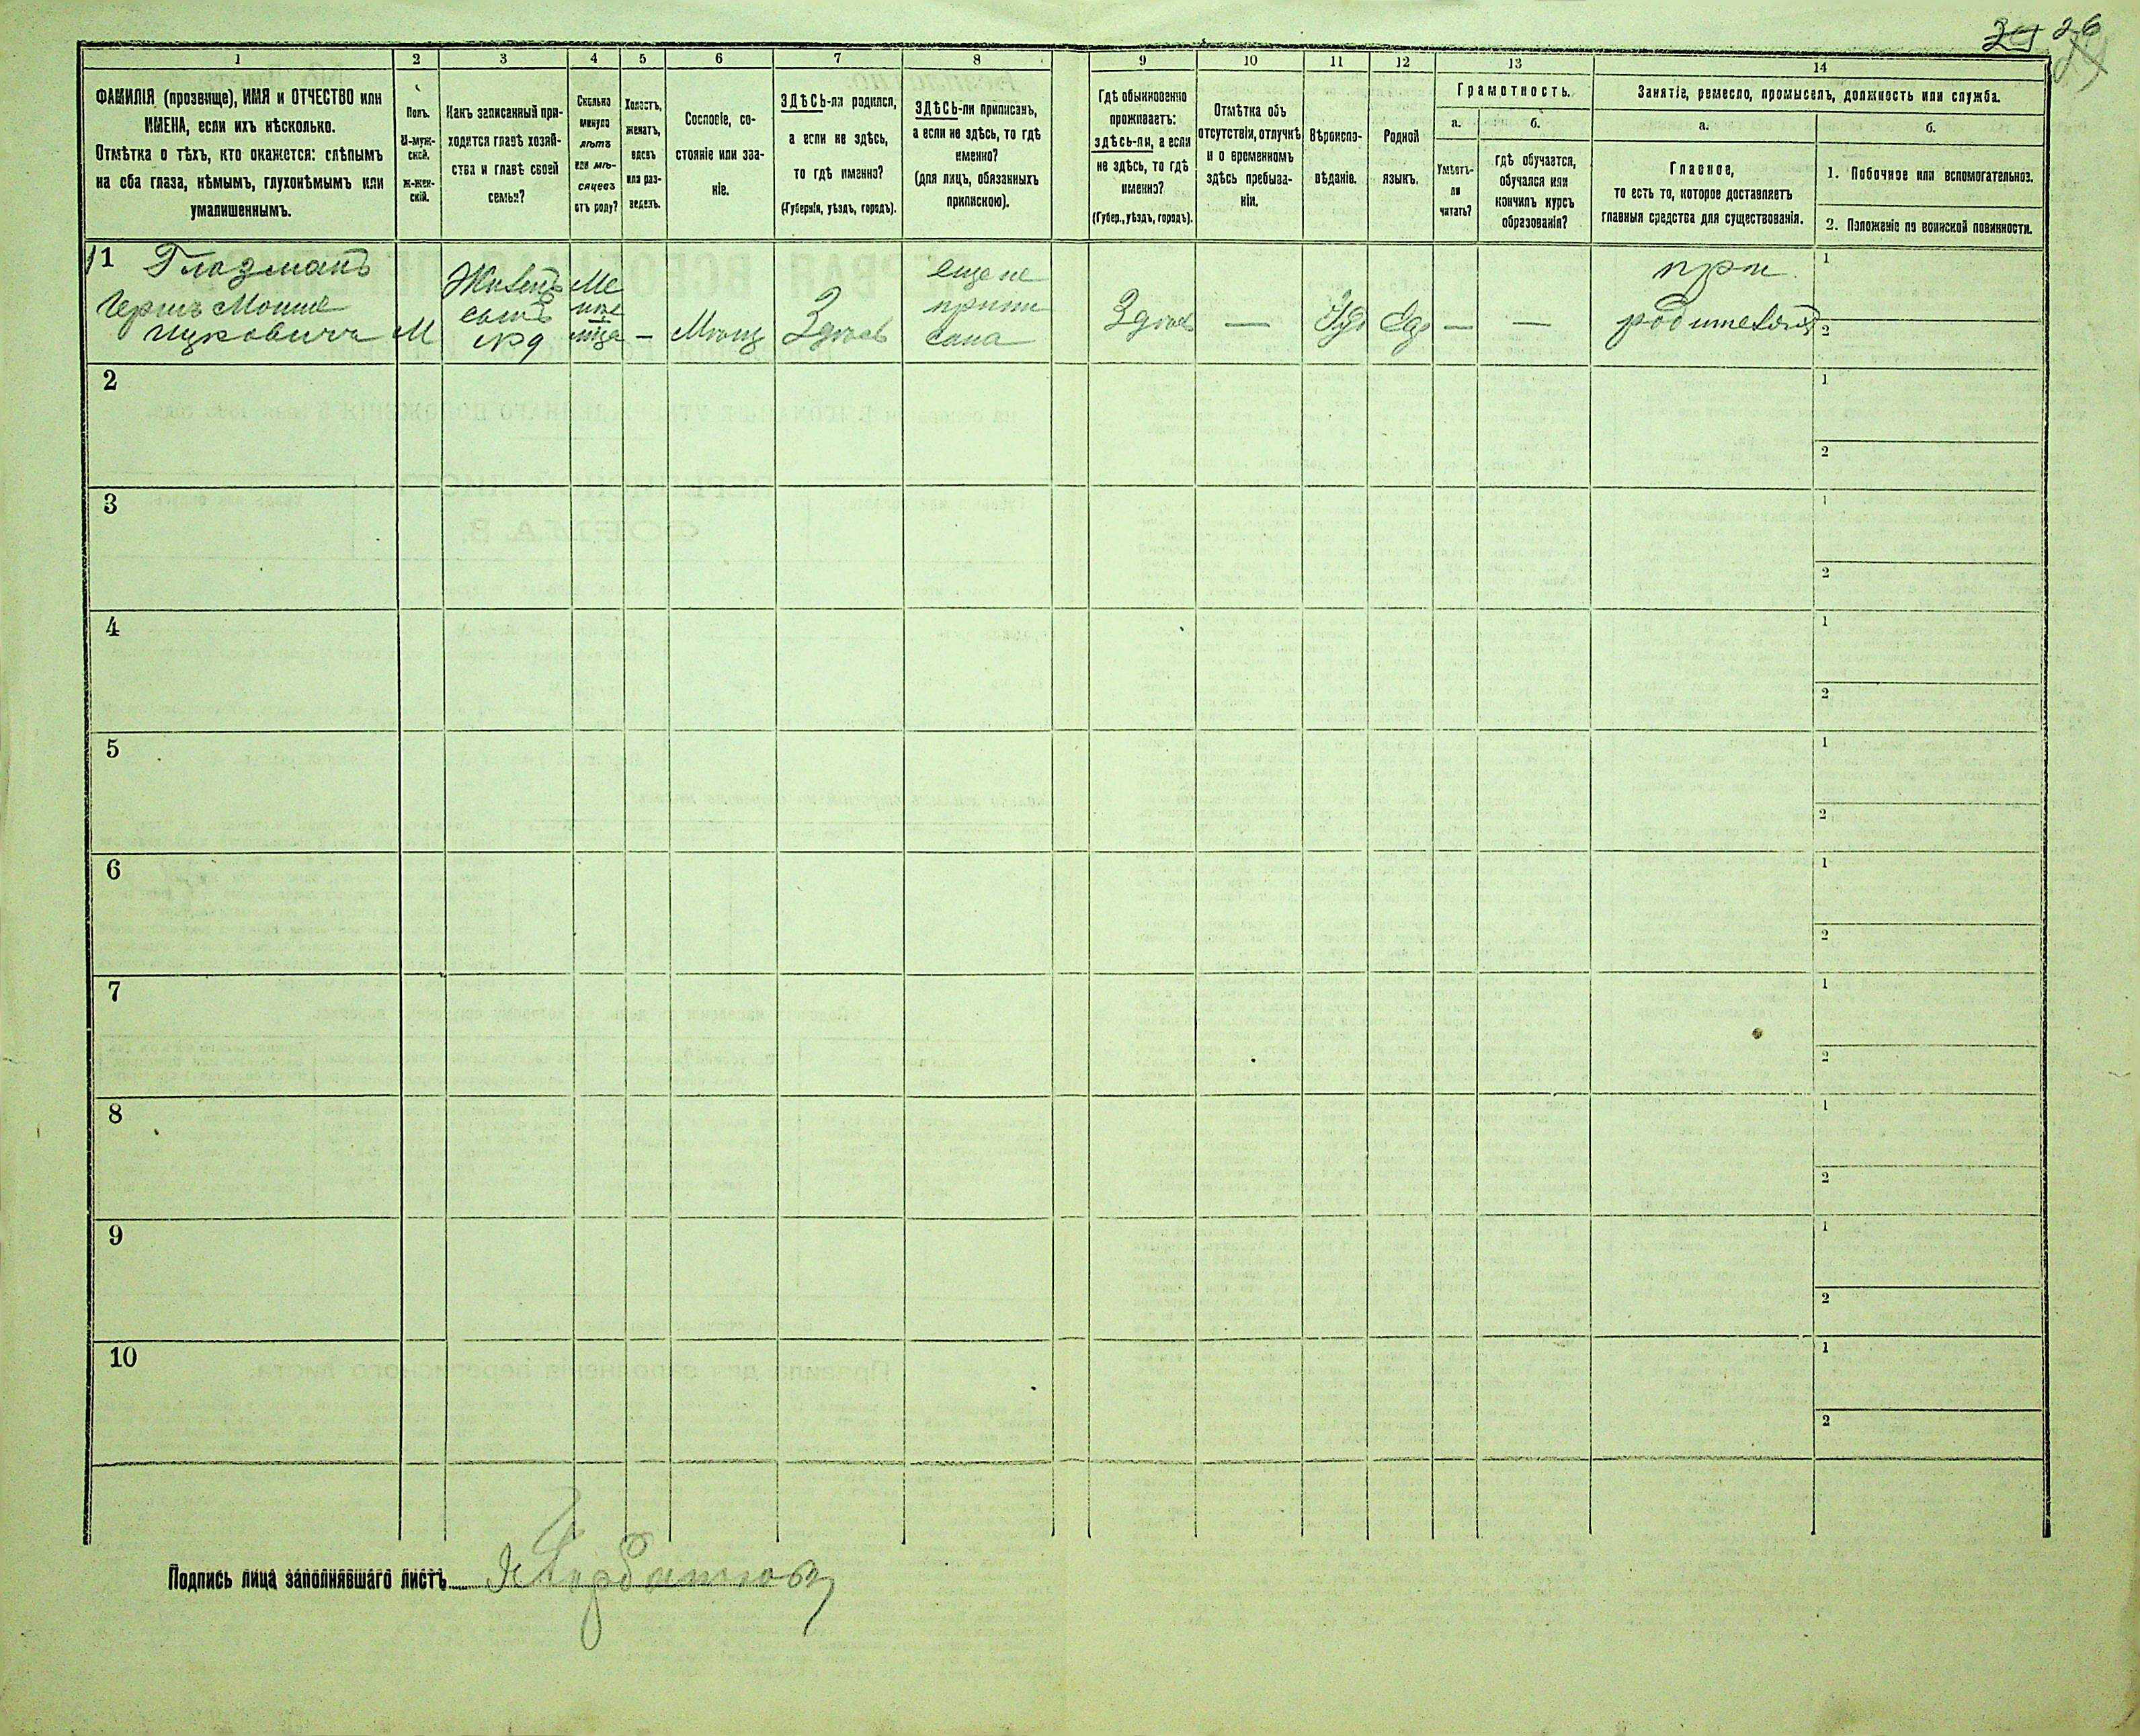 26
1
2
3
4
5
6
7
8
9
10
11
12
13
14
ФАМИЛІЯ (прозвище), ИМЯ и ОТЧЕСТВО или
ИМЕНА, если ихъ нѣсколько.
Отмѣтка о тѣхъ, кто окажется: слѣпымъ
на оба глаза, нѣмымъ, глухонѣмымъ или
умалишеннымъ.
Полъ.
М-муж-
ской.
ж-жен-
скій.
Какъ записанный при-
ходится главѣ хозяй-
ства и главѣ своей
семьи?
Сколько
минуло
лѣтъ
или мѣ-
сяцевъ
отъ роду?
Холостъ,
женатъ,
вдовъ
или раз-
веденъ.
Сословіе, со-
стояніе или зва-
ніе.
ЗДѢСЬ-ли родился,
а если не здѣсь,
то гдѣ именно?
(Губернія, уѣздъ, городъ).
ЗДѢСЬ-ли приписанъ,
а если не здѣсь, то гдѣ
именно?
(для лицъ, обязанныхъ
припискою).
Гдѣ обыкновенно
проживаетъ:
здѣсь-ли, а если
не здѣсь, то гдѣ
именно?
(Губер., уѣздъ, городъ).
Отмѣтка объ
отсутствіи, отлучкѣ
и о временномъ
здѣсь пребыва-
ніи.
Вѣроиспо-
вѣданіе.
Родной
языкъ.
Грамотность.
а.
б.
Умѣетъ-
ли
читать?
гдѣ обучается,
обучался или
кончилъ курсъ
образованія?
Занятіе, ремесло, промыселъ, должность или служба.
а.
б.
Главное,
то есть то, которое доставляетъ
главныя средства для существованія.
1. Побочное или вспомогательное.
2. Положеніе по воинской повинности.
1 Глазманъ
Герш Мошко
Ицковичъ
М
сынъ
№ 9
Ме
ца
—
Мѣщ
Здѣсь
еще не
припи
сана
Здѣсь
—
Іуд
—
—
при
родителяхъ
1
2
2
1
2
3
1
2
4
1
2
5
1
2
6
1
2
7
1
2
8
1
2
9
1
2
10
1
2
Подпись лица заполнявшаго листъ